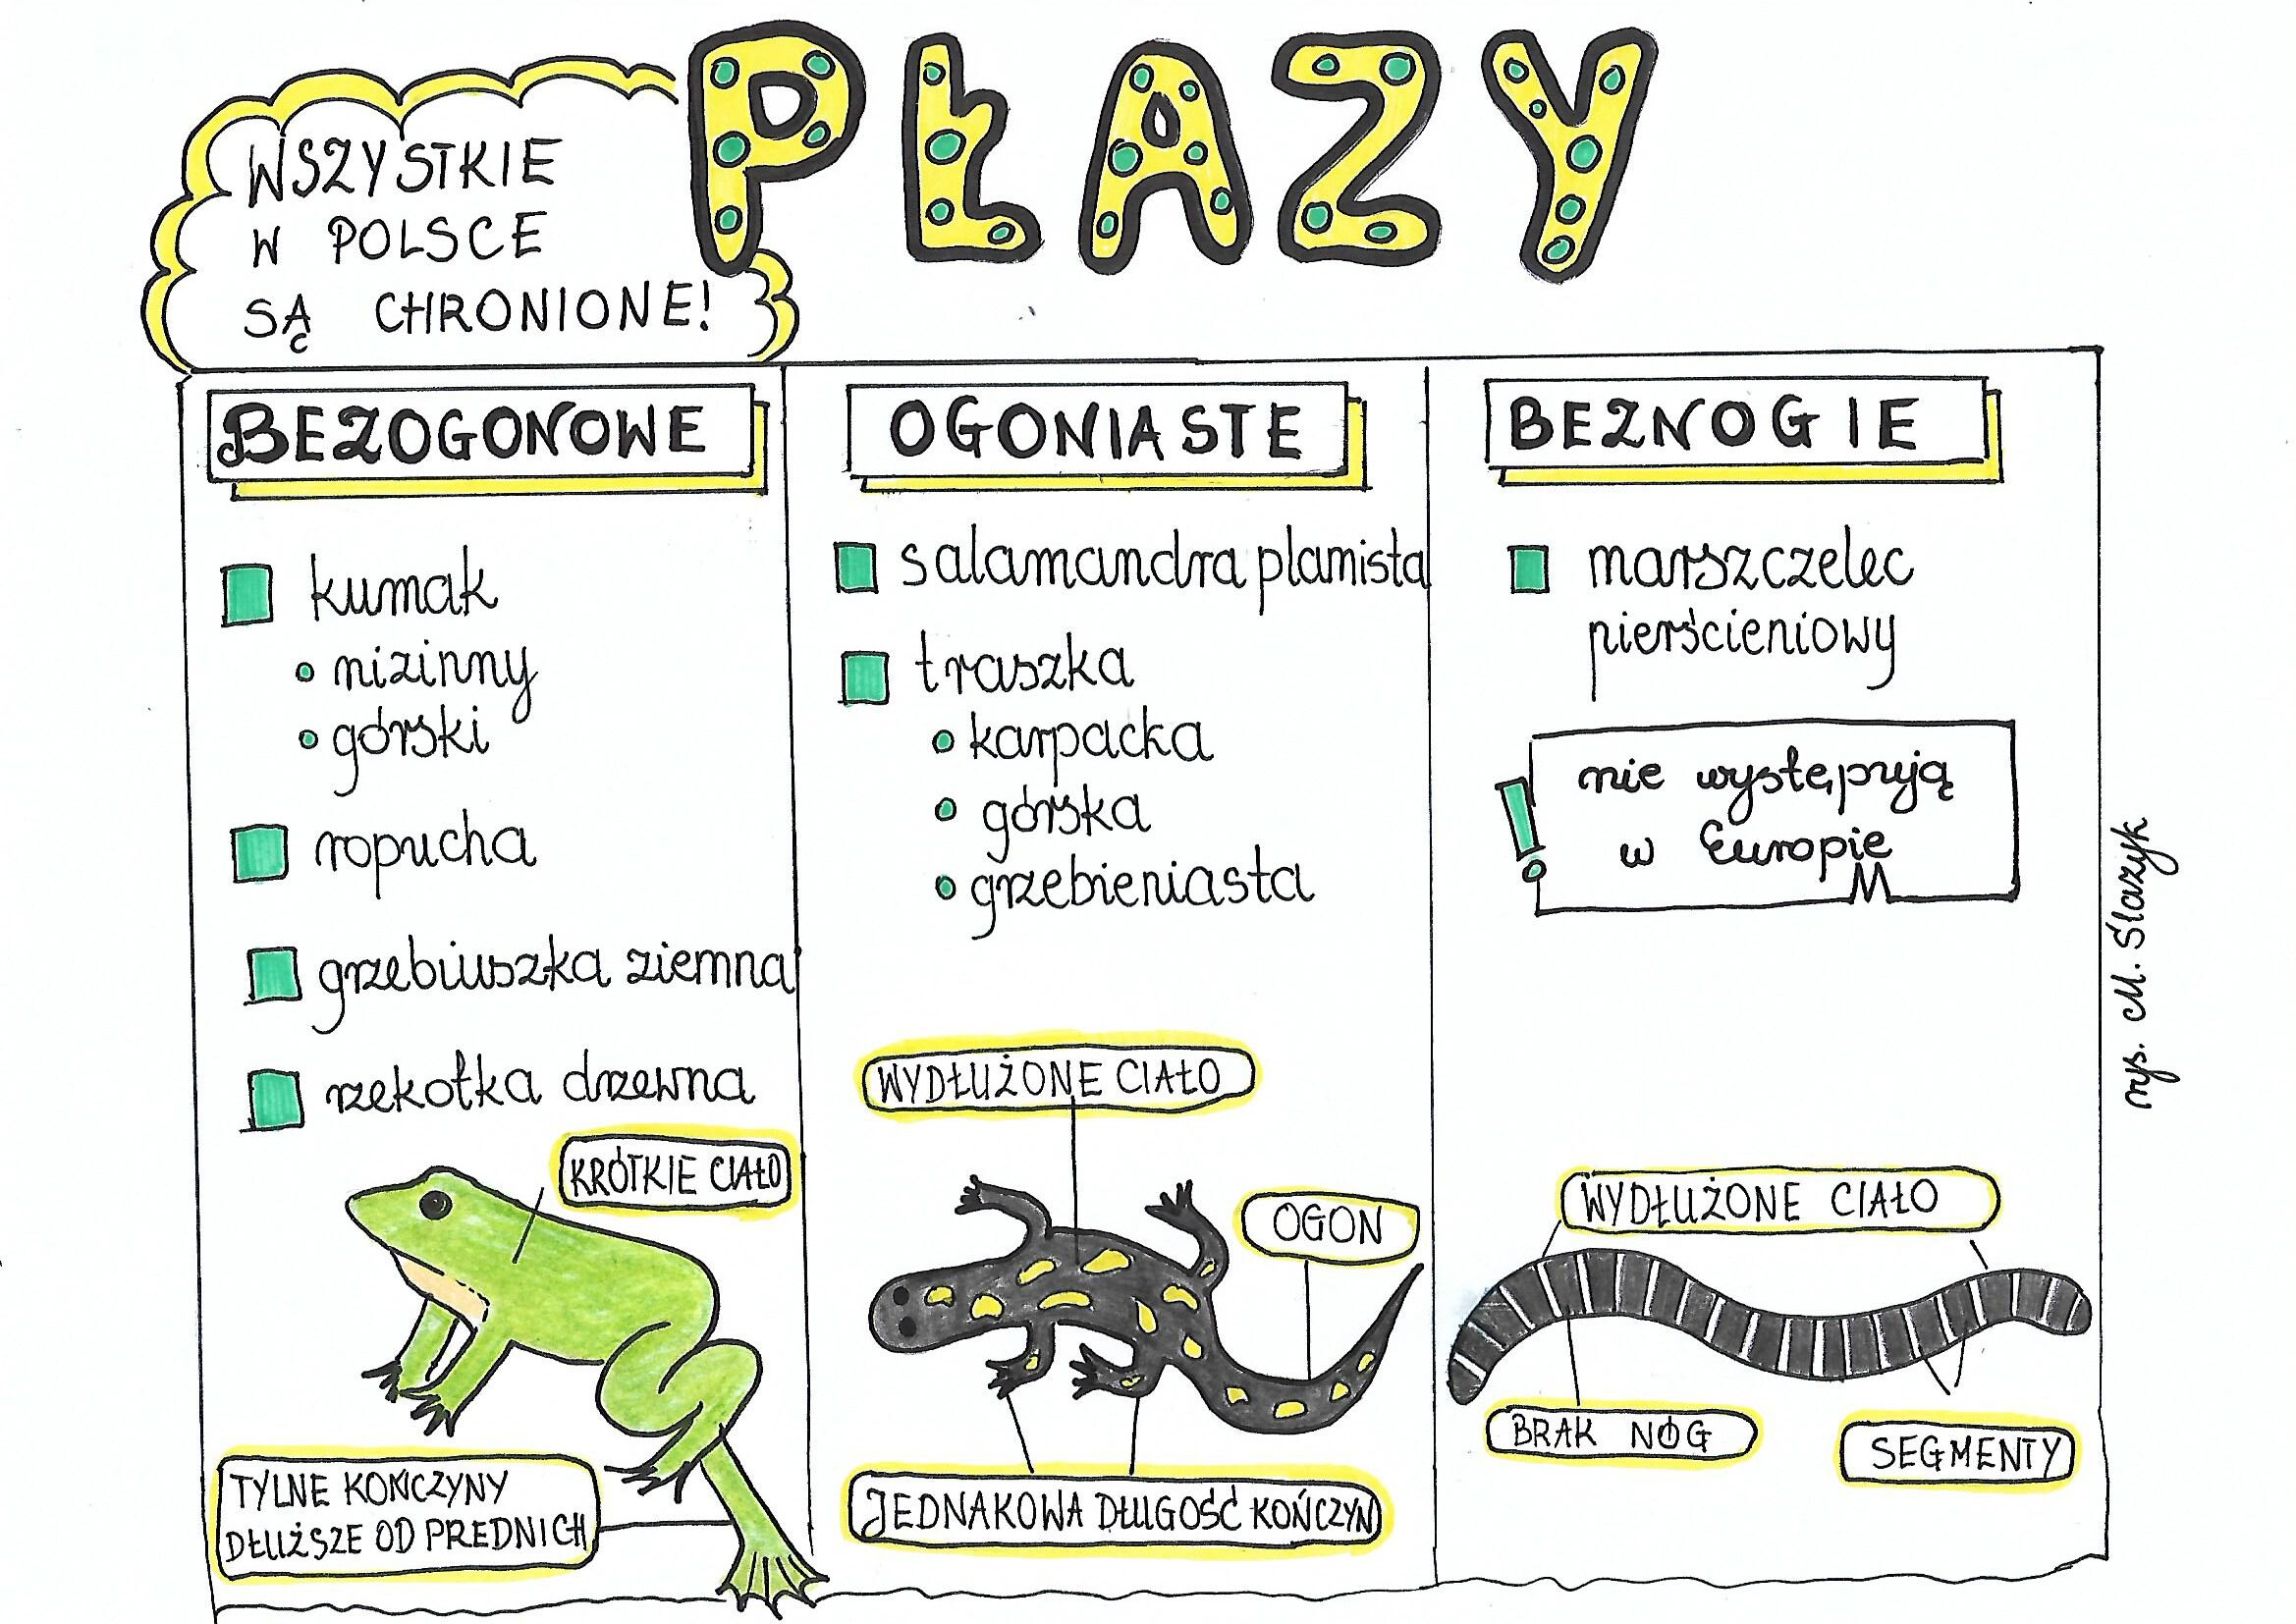 PŁAZY
WSZYSTKIE
W POLSCE
SĄ CHRONIONE!
BEZOGONOWE
kumak
nizinny
górski
ropucha
grzebiuszka ziemna
rzekotka drzewna
KRÓTKIE CIAŁO
TYLNE KOŃCZYNY
DŁUŻSZE OD PREDNICH
OGONIASTE
salamandra plamista
traszka
karpacka
górska
grzebieniasta
WYDŁUŻONE CIAŁO
OGON
JEDNAKOWA DŁUGOŚĆ KOŃCZYN
BEZNOGIE
marszczelec
pierścieniowy
!
nie występują
w Europie
WYDŁUŻONE CIAŁO
BRAK NÓG
SEGMENTY
rys. M. Ślazyk